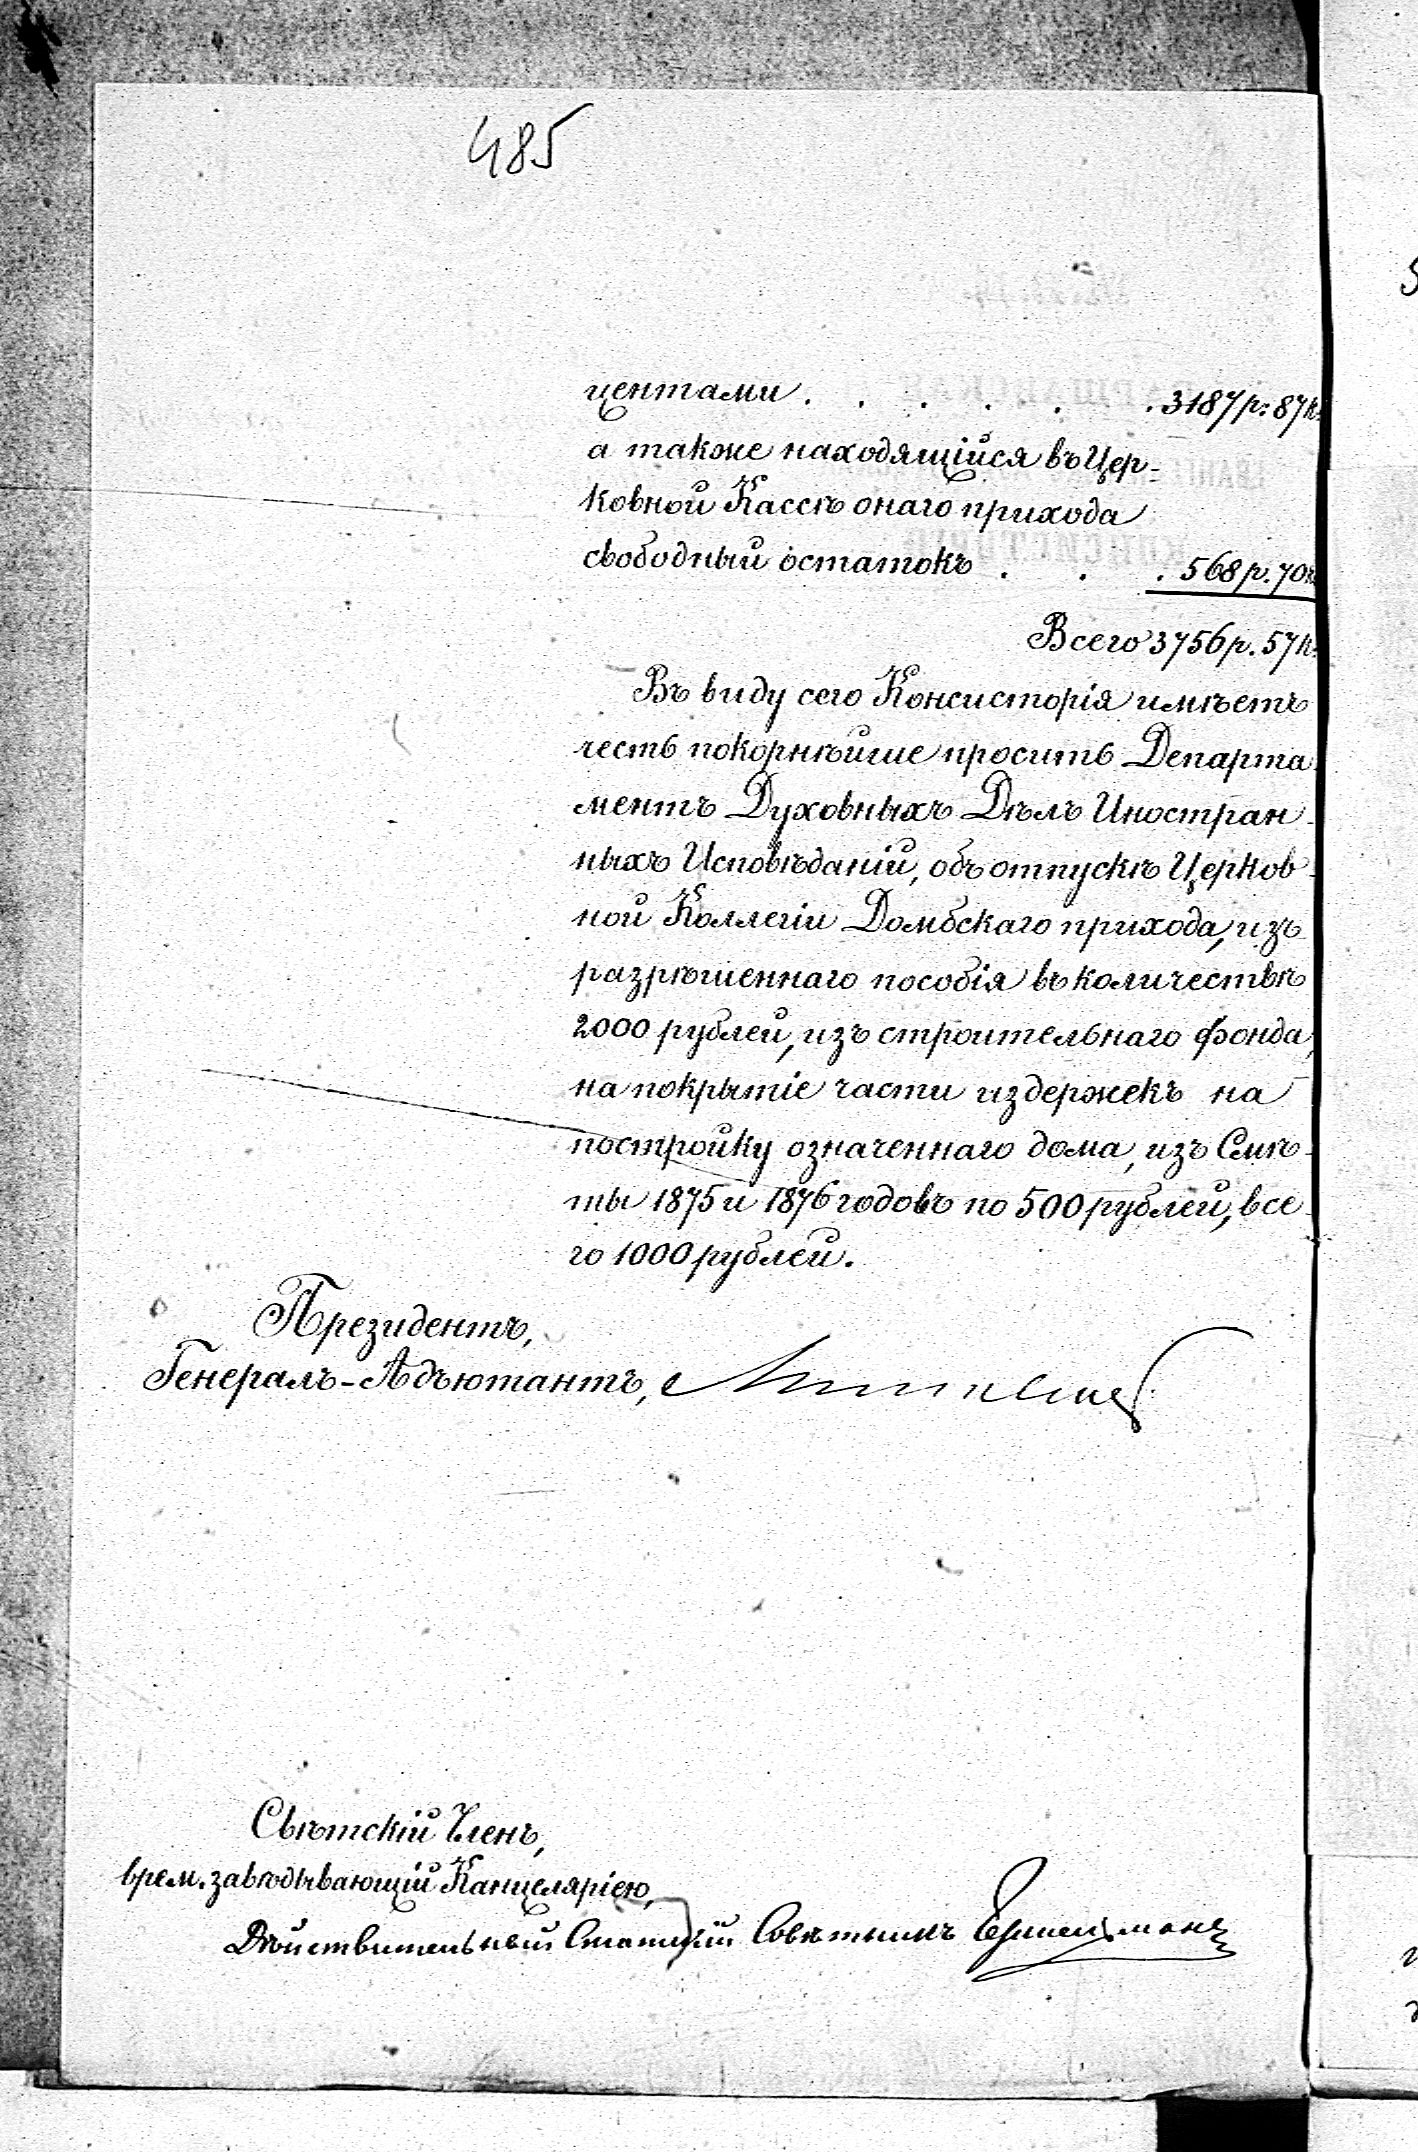 485
центами . . . . . . 3187р: 87к.
а также находящійся въ Цер-
ковной Кассѣ онаго прихода
свободный остатокъ . . . 568р. 70к.
Всего 3756р. 57к.
Въ виду сего Консисторія имѣетъ
честь покорнѣйше просить Департа-
ментъ Духовныхъ Дѣлъ Иностран-
ныхъ Исповѣданій, объ отпускѣ Церков-
ной Коллегіи Домбскаго прихода, изъ
разрѣшеннаго пособія въ количествѣ
2000 рублей, изъ строительнаго фонда,
на покрытіе части издержекъ на
постройку означеннаго дома, изъ Смѣ-
ты 1875 и 1876 годовъ по 500 рублей, все-
го 1000 рублей.
Президентъ,
Генералъ-Адъютантъ,
Свѣтскій Членъ,
врем. завѣдывающій Канцеляріею,
Дѣйствительный Статскій Совѣтникъ